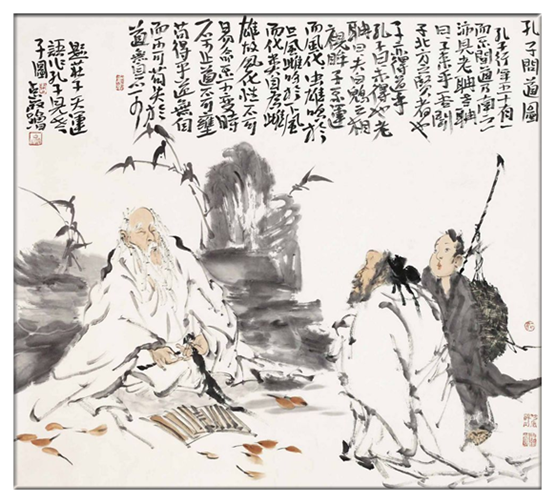 孔子問道圖
孔子行年五十有一
而不聞道乃南之
沛見老聃老聃
曰子來乎吾聞
子北方賢者也
子亦得道乎
孔子曰未得也老
聃曰夫白鶂之相
視眸子不運
而風化虫雄鳴於
上風雌鳴於下風
而化类自為雌
雄故風化性不可
易命不可变時
不可止道不可壅
苟得于道無自
而不可苟失於
道無自而可
題莊子天運
語作孔子見老
子圖